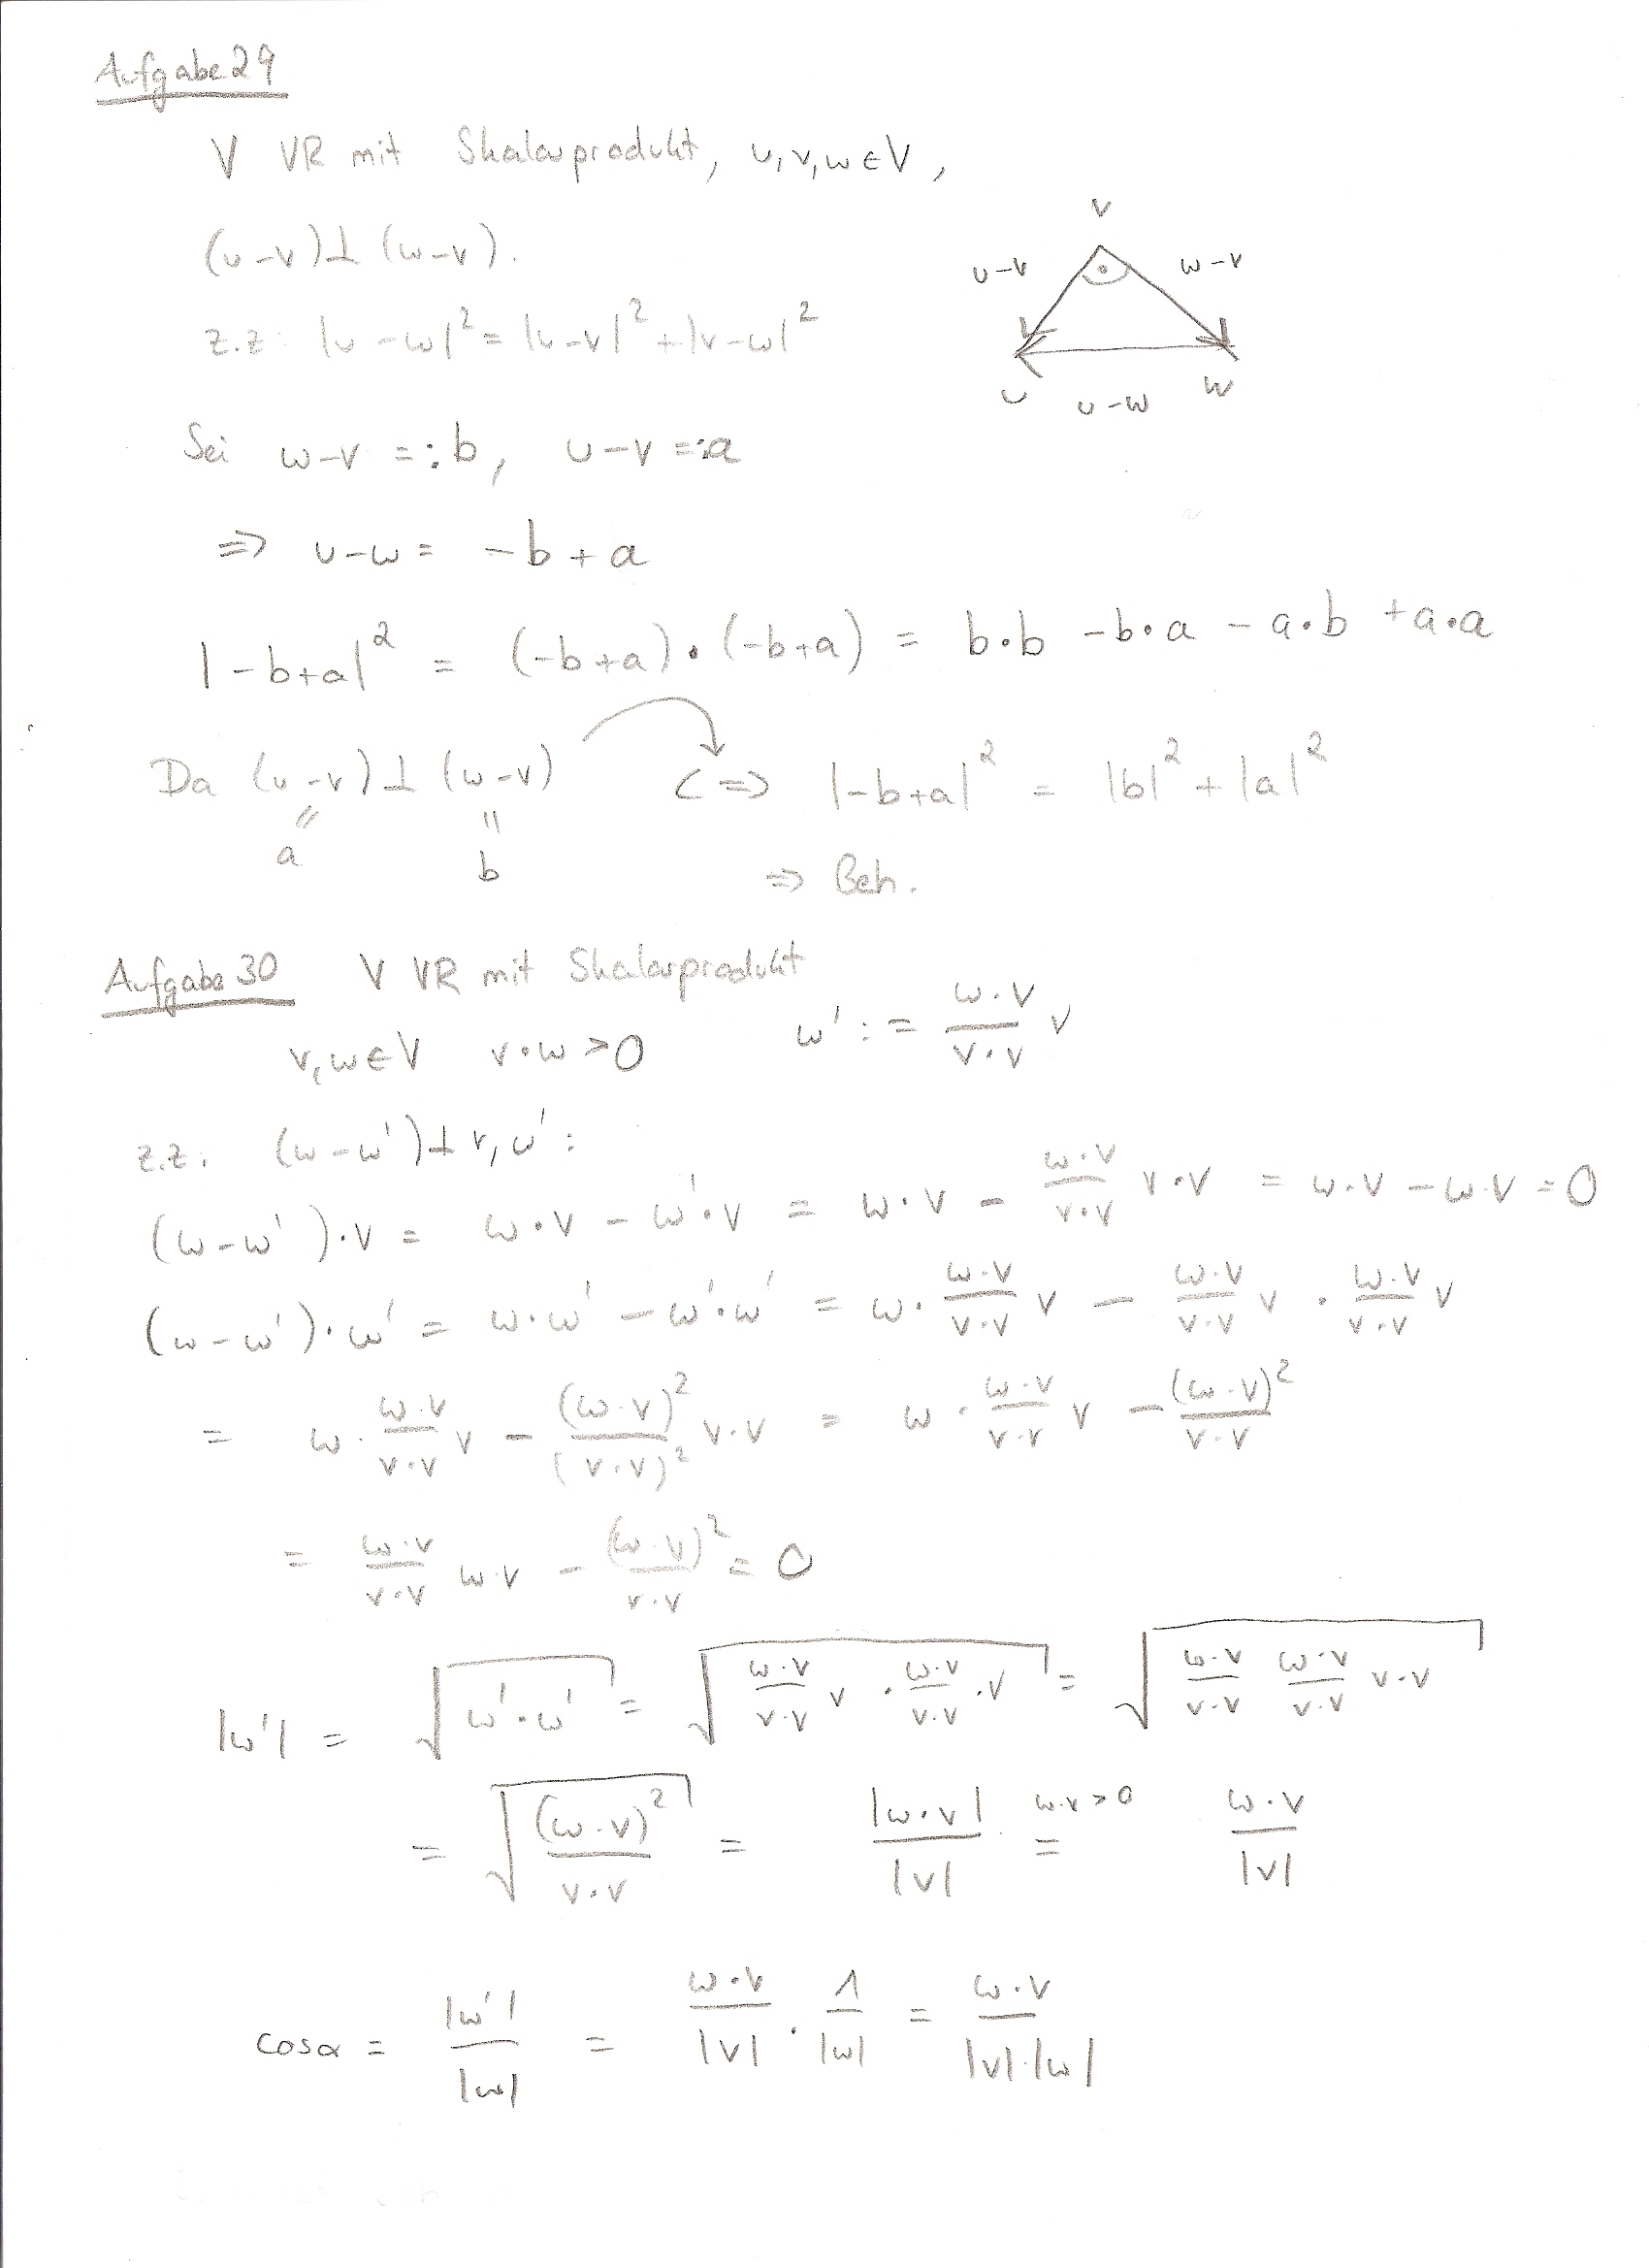 Aufgabe 29
V VR mit Skalarprodukt, u, v, w ∈ V,
(u-v) ⊥ (w-v).
z.z: |u-w|² = |u-v|² + |v-w|²
v
u-v
w-v
u
u-w
w
Sei w-v =: b, u-v =: a
⇒ u-w = -b+a
|-b+a|² = (-b+a)•(-b+a) = b•b - b•a - a•b + a•a
Da (u-v) ⊥ (w-v) ⇔ |-b+a|² = |b|² + |a|²
= =
a b
⇒ Beh.
Aufgabe 30 V VR mit Skalarprodukt
v, w ∈ V v•w > 0 w' := (w·v)/(v·v) v
z.z. (w-w') ⊥ v, w':
(w-w')·v = w·v - w'·v = w·v - (w·v)/(v·v) v·v = w·v - w·v = 0
(w-w')·w' = w·w' - w'·w' = w·(w·v)/(v·v) v - (w·v)/(v·v) v · (w·v)/(v·v) v
= w·(w·v)/(v·v) v - (w·v)²/(v·v)² v·v = w·(w·v)/(v·v) v - (w·v)²/(v·v)
= (w·v)/(v·v) w·v - (w·v)²/(v·v) = 0
|w'| = √(w'·w') = √((w·v)/(v·v) v · (w·v)/(v·v) ·v) = √((w·v)/(v·v) (w·v)/(v·v) v·v)
= √((w·v)²/(v·v)) = |w·v|/|v| = w·v>0 (w·v)/|v|
cosα = |w'|/|w| = (w·v)/|v| · 1/|w| = (w·v)/(|v|·|w|)